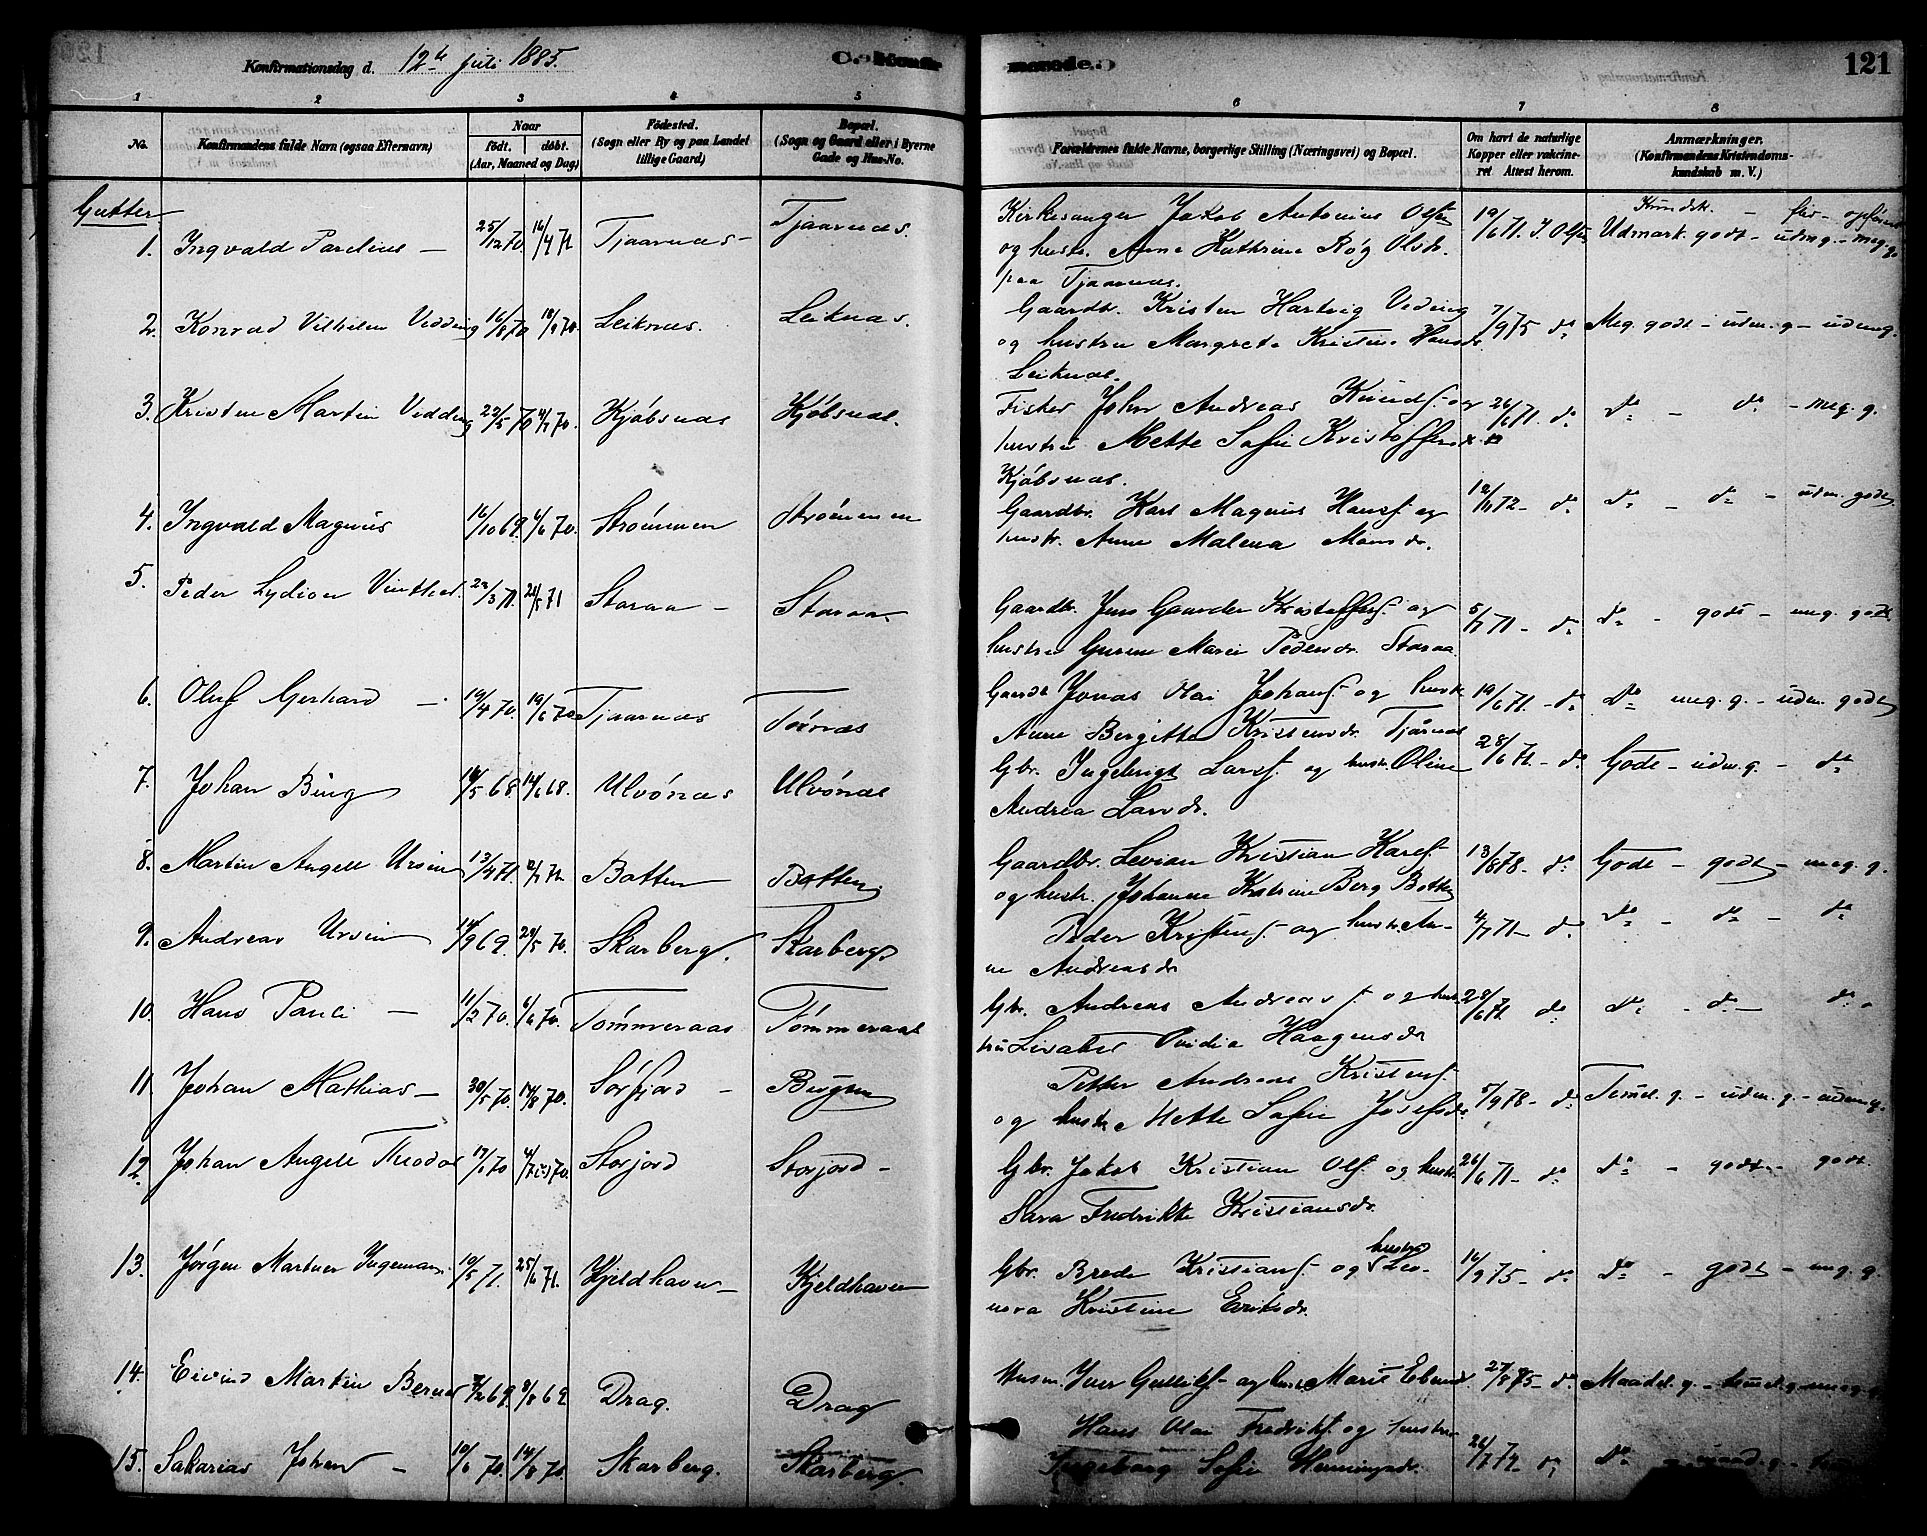 Konfirmationsdag d. 12te juli 1885.
C. Konfirmerede.
121
1 2 3 4 5 6 7 8
No.
Konfirmandens fulde Navn (ogsaa Efternavn)
Naar
født. døbt.
(Aar, Maaned og Dag)
Fødested.
(Sogn eller By og paa Landet
tillige Gaard)
Bopæl.
(Sogn og Gaard eller i Byerne
Gade og Hus-No.
Forældrenes fulde Navne, borgerlige Stilling (Næringsvei) og Bopæl.
Om havt de naturlige
Kopper eller vakcine-
ret Attest herom.
Anmærkninger.
(Konfirmandens Kristendoms-
kundskab m. V.)
Gutter
Kundsk. - flid - opførsel
1. Ingvald Parelius - 25/12 70. 16/4 71 Tjaarnæs - Tjaarnæs. Kirkesanger Jakob Antonius Olsen 19/6 71. J. Olsen Udmærk. godt - udm. g. - meg. g.
og hustr. Anne Kathrine Røg Olsdr.
paa Tjaarnæs.
2. Konrad Vilhelm Vedding 16/8 70 18/9 70. Leiknæs. Leiknæs. Gaardbr. Kristen Hartvig Veding 7/9 75 do Meg. godt - udm. g - udm g.
og hustru Margrete Kristine Hansdr.
Leiknæs.
3. Kristen Martin Vedding 22/5 70 4/7 70. Kjøbsnæs Kjøbsnæs. Fisker John Andreas Knuds. og 26/6 71. do do - do - meg. g.
hustru Mette Sofie Kristoffersdr
Kjøbsnæs.
4. Ingvald Magnus 16/10 69. 6/6 70. Strømmen Strømmen Gaardbr. Karl Magnus Hansf. og 12/11 72 - do do - do - udm. godt
hustr. Anne Malena Monsdr.
5. Peder Lydion Vinther. 22/3 71. 28/5 71 Staraa - Staraa. Gaardbr. Jens Gaarder Kristoffersf. og 5/7 71 - do do - godt - meg. godt
hustru Gurine Marie Pedersdr. Staraa.
6. Oluf Gerhard - 19/4 70. 19/6 70 Tjaarnæs Tørnæs Gaardb Jonas Olai Johansf. og hustr. 19/6 71. - do do meg. g. - udm. godt
Anne Bergitte Kristensdr. Tjårnæs
7. Johan Bing 14/5 68 14/6 68. Ulvønæs Ulvønæs Gbr. Ingebrigt Larsf. og hustr. Oline 28/6 71. - do Godt - udm. g. - do
Andrea Larsdr.
8. Martin Angell Ursin 13/4 71. 2/7 71. Botten Botten Gaardbr. Levion Kristian Karlsf. 13/8 78. do Godt - godt - meg. g.
og hustr. Johanne Katrine Berg Botten
9. Andreas Ursin 14/9 69. 29/5 70. Skarberg. Skarberg Peder Kristensf. og hustr. An- 4/7 71 - do do - do - do
ne Andreasdr
10. Hans Pauli - 11/2 70. 6/6 70. Tømmeraas Tømmeraas Gbr. Andreas Andreasf. og hus- 28/6 71. do do - do - do
tru Lisabet Ovidia Haagensdr
11. Johan Mathias - 30/5 70. 14/8 70. Sørfjord - Bugen Petter Andreas Kristensf. 5/9 78 - do Temel. g. - udm. g. - udm. g.
og hustr. Mette Sofie Josefsdr
12. Johan Angell Theodor 17/1 70 Storjord Storjord - Gbr. Jakob Kristian Olsf. og hustr. 26/6 71 - do do - godt - godt.
Sara Fredrikke Kristiansdr.
13. Jørgen Martner Ingeman. 10/5 71. 25/6 71. Kjeldhaven - Kjeldhaven Gbr. Brede Kristiansf. og hustru Leo- 16/9 75 - do do - godt - meg. g.
nora Kristine Eriksdr.
14. Eivind Martin Berner 9/8 69 Drag. Drag Husm. Iver Gulliksf. og hustr. Marit 27/8 85 - do Maadel. g. - temel. g. - meg. g.
15. Sakarias Johan - 10/6 70. 14/8 70. Skarberg. Skarberg. Hans Olai Fredriksf. og hustru 26/7 74. do do - maad. g. -
Ingeborg Sofie Henningsdr.